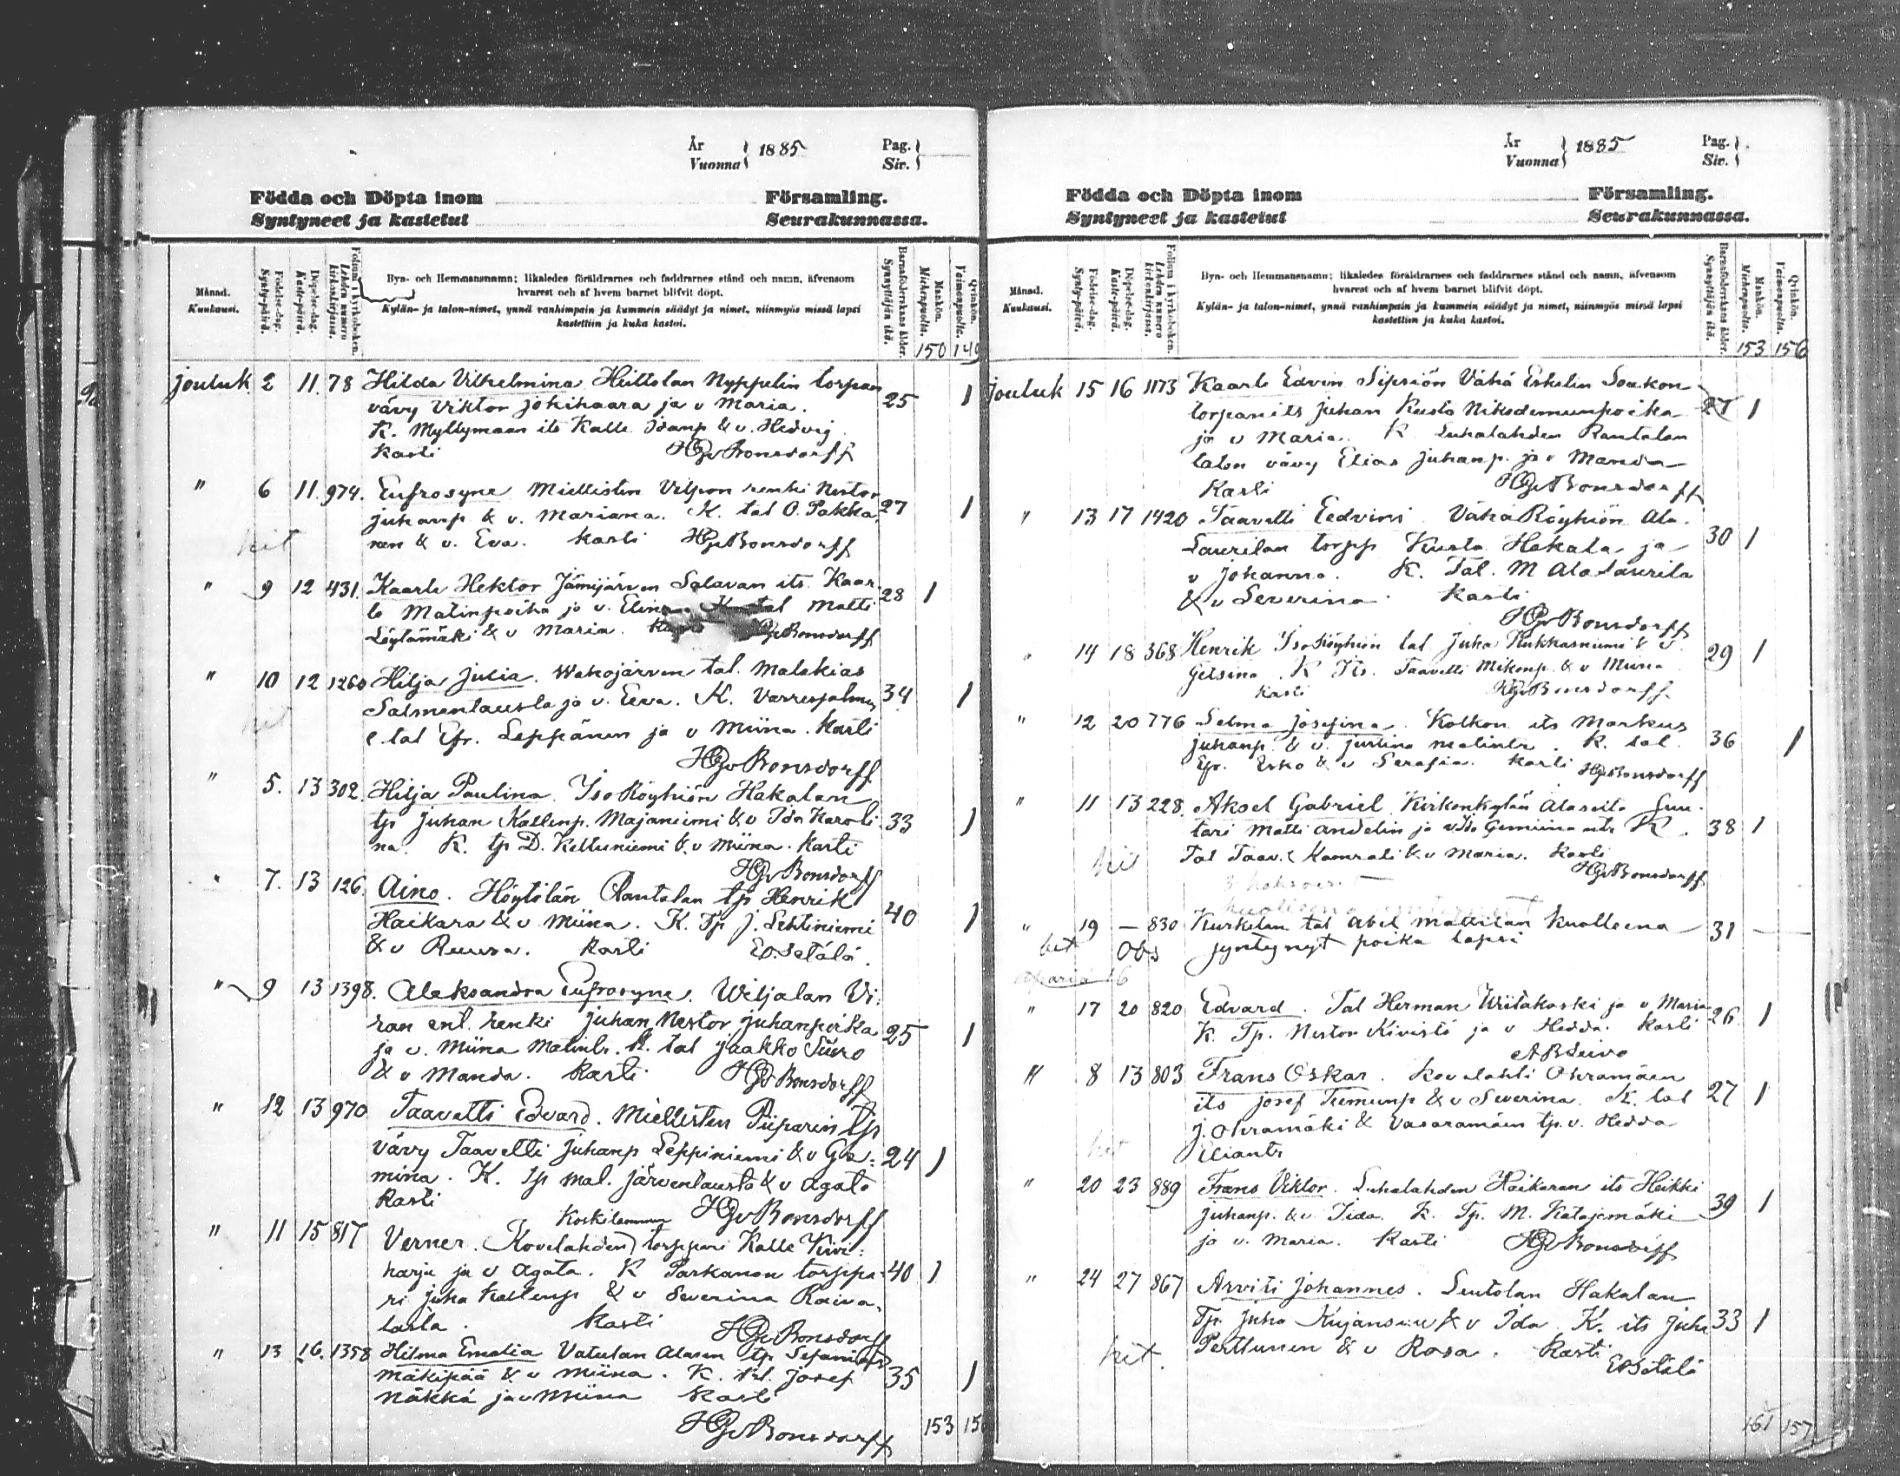 År
Vuonna } 1885
Pag.
Siv.
Födda och Döpta inom Församling.
Syntyneet ja kastetut Seurakunnassa.
Månad.
Kuukausi.
Födelse-dag.
Synty-päivä.
Döpelse-dag.
Kaste-päivä.
Folium i kyrkoboken.
Lehden numero kirkonkirjassa.
Bya- och Hemmansnamn; likaledes föräldrarnes och faddrarnes stånd och namn, äfvensom
hvarest och af hvem barnet blifvit döpt.
Kylän- ja talon-nimet, ynnä vanhimpain ja kummein säädyt ja nimet, niinmyös missä lapsi
kastettiin ja kuka kastoi.
Barnaföderskans ålder.
Synnyttäjän ikä.
Mankön.
Miehenpuolta.
Qvinkön.
Vaimonpuolta.
150 140
jouluk. 2 11. 78 Hilda Vilhelmina Heittolan Nyppelin torpan 25 1
vävy Viktor Jokihaara ja v Maria.
K. Myllymaan its Kalle Idanp & v. Hedvig.
Kasti HGvBonsdorff
" 6 11. 974. Eufrosyne Miettisten Vilpon renki Nestor 27 1
juhanp & v. Mariana. K. tal O. Pakka
nen & v. Eva. Kasti HGvBonsdorff
hit
" 9 12 431. Kaarle Hektor Jämijärven Salavan its Kaar- 28 1
le Matinpoika ja v. Elina K tal Matti
Löytämäki & v Maria. HGvBonsdorff
" 10 12 1260 Hilja Julia. Wahojärven tal. Malakias 34 1
Salmentausta ja v. Eeva. K. Varresjalmen
e tal Efr. Leppänen ja v Miina. Kasti
hit
HGvBonsdorff
" 5. 13 302. Hilja Paulina. Iso Röyhiön Hakalan 33 1
tp Juhan Kallenp. Majaniemi & v Ida Karoli-
na. K. tp D. Kelluniemi & v Miina. Kasti
HGvBonsdorff
" 7. 13 126. Aino. Höytölän Rantalan tp Henrik 40 1
Haikara & v Miina. K. Tp J. Lehtiniemi
& v Ruusa. Kasti E.Setälä.
" 9 13 1398. Aleksandra Eufrosyne. Wiljalan Vi-
ran ent. renki Juhan Nestor Juhanpoika 25 1
ja v. Miina Matintr. K. tal Jaakko Siiro
& v Manda. Kasti HGvBonsdorff
" 12 13 970 Taavetti Edvard. Miettisten Piiparin tp
vävy Taavetti Juhanp Leppiniemi & v Ge- 24 1
mina. K. tp Mal. Järventausta & v Agata
Kasti HGvBonsdorff
Koskilammen
" 11 15 817 Verner. (Kovelahden) torppari Kalle Kivi-
harju ja v Agata. K Parkanon torppa- 40 1
ri Juha Kallenp & v Severina Raiva-
lasta. Kasti HGvBonsdorff
" 13 16. 1358 Hilma Emalia Vatulan Alasen tp Sefanias
Mäkipää & v Miina. K. tal. Josef 35 1
Näkkä ja v Miina Kasti
HGvBonsdorff
153 150
År
Vuonna } 1885
Pag.
Siv.
Födda och Döpta inom Församling.
Syntyneet ja kastetut Seurakunnassa.
Månad.
Kuukausi.
Födelse-dag.
Synty-päivä.
Döpelse-dag.
Kaste-päivä.
Folium i kyrkoboken.
Lehden numero kirkonkirjassa.
Bya- och Hemmansnamn; likaledes föräldrarnes och faddrarnes stånd och namn, äfvensom
hvarest och af hvem barnet blifvit döpt.
Kylän- ja talon-nimet, ynnä vanhimpain ja kummein säädyt ja nimet, niinmyös missä lapsi
kastettiin ja kuka kastoi.
Barnaföderskans ålder.
Synnyttäjän ikä.
Mankön.
Miehenpuolta.
Qvinkön.
Vaimonpuolta.
153 156
Jouluk 15 16 1173 Kaarle Edvin Sipsiön Vähä Eskelin Soukon
torpan its Juhan Kusta Nikodemunpoika 27 1
ja v Maria. K. Luhalahden Rantalan
talon vävy Elias Juhanp. ja v Manda
Kasti HGvBonsdorff
" 13 17 1420 Taavetti Eedvini Vähä Röyhiön Ala- 30 1
Laurilan torpp Kusta Hakala ja
v Johanna. K. Tal. M Ala Laurila
& v Severina. Kasti
HGvBonsdorff
" 14 18 368 Henrik Iso Röyhiön tal Juha Kukkasniemi & v. 29 1
Gelsina. K Its. Taavetti Mikonp. & v Miina
Kasti HGvBonsdorff
" 12 20 776 Selma Josefina. Kolkon its Markus 36 1
Juhanp. & v. Justina Matintr. K. tal.
Efr. Esko & v Serafia. Kasti HGvBonsdorff
" 11 13 228. Aksel Gabriel Kirkonkylän Alasvita Suu-
tari Matti Andelin ja v Ida Gemiina mtr. K. 38 1
hit Tal Taav. Komrati & v Maria. Kasti
HGvBonsdorff
" 19 — 830 Kurkelan tal Abel Mattilan kuolleena 31 —
hit Obs syntynyt poika lapsi
" 17 20 820 Edvard. Tal Herman Wiitakoski ja v. Maria 26 1
K. Tp. Nestor Kivistö ja v Hedda. Kasti
" 8 13 803 Frans Oskar. Kovelahti Ohramäen 27 1
its Josef Tuomunp & v Severina. K. tal
J. Ohramäki & Vasaramäen tp. v. Hedda
hit Eliantr
" 20 23 889 Frans Viktor. Luhalahden Haikaran its Heikki 39 1
Juhanp. & v. Iida. K. Tp. M. Katajamäki
ja v. Maria. Kasti HGvBonsdorff
" 24 27 867 Arviti Johannes. Leutolan Hakalan
Tp. Juha Kujansuu & v Ida. K. its Juha 33 1
hit. Perttunen & v Rosa. Kasti
ESetälä
161 157